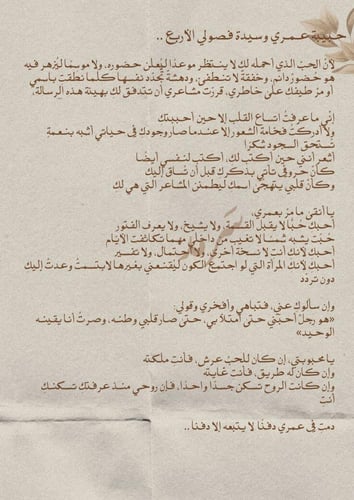 حبيبة عمري وسيدة فصولي الأربع ..
لأن الحبّ الذي أحمله لكِ لا ينتظر موعدًا ليُعلن حضوره، ولا موسمًا ليُزهر فيه
هو حضورٌ دائم، وخفقةٌ لا تنطفئ، ودهشةٌ تُجدّد نفسها كلما نطقت باسمكِ
أو مرّ طيفكِ على خاطري، قررتُ مشاعري أن تتدفق لكِ بهيئة هذه الرسالة:
إني ما عرفتُ اتساع القلب إلا حين أحببتكِ
ولا أدركتُ فخامة الشعور إلا عندما صار وجودكِ في حياتي أشبه بنعمةٍ
تستحق السجود شكرًا
أشعر أنني حين أكتب لكِ، أكتب لنفسي أيضًا
كأنّ حروفي تأتي بذكركِ قبل أن تُساق إليكِ
وكأنّ قلبي يتهجّى اسمكِ ليطمئن المشاعر التي هي لكِ
يا أنقى ما مرّ بعمري،
أحبكِ حُبًّا لا يقبل القسمة، ولا يشيخ، ولا يعرف الفتور
حُبّ يشبه شمسًا لا تغيب من داخلي مهما تكاثفت الأيام
أحبكِ لأنكِ أنتِ لا نسخة أخرى، ولا احتمال، ولا تفسير
أحبكِ لأنكِ المرأة التي لو اجتمع الكون ليُقنعني بغيرها لابتسمتُ وعدتُ إليكِ
دون تردّد
وإن سألوكِ عني، فتباهي وأفخري وقولي:
«هو رجلٌ أحبّني حتى امتلأ بي، حتى صار قلبي وطنه، وصرتُ أنا يقينه
الوحيد»
يا محبوبتي، إن كان للحبّ عرش، فأنتِ ملكته
وإن كان له طريق، فأنتِ غايته
وإن كانت الروح تسكن جسدًا واحدًا، فإن روحي منذ عرفتكِ تسكنكِ
أنتِ
دمتِ في عمري دفئًا لا يتبعه إلا دفئًا..